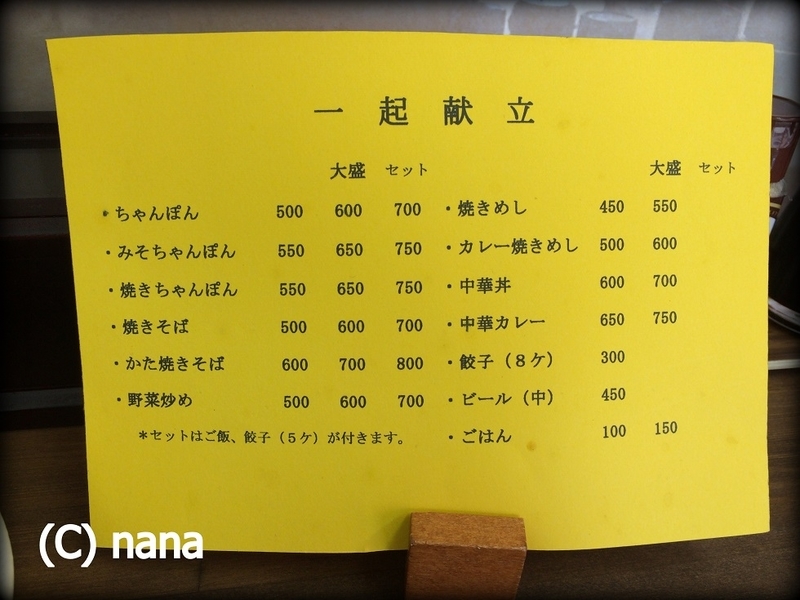 一起献立
大盛 セット
・ちゃんぽん 500 600 700
・みそちゃんぽん 550 650 750
・焼きちゃんぽん 550 650 750
・焼きそば 500 600 700
・かた焼きそば 600 700 800
・野菜炒め 500 600 700
＊セットはご飯、餃子（５ケ）が付きます。
大盛 セット
・焼きめし 450 550
・カレー焼きめし 500 600
・中華丼 600 700
・中華カレー 650 750
・餃子（８ケ） 300
・ビール（中） 450
・ごはん 100 150
(C) nana